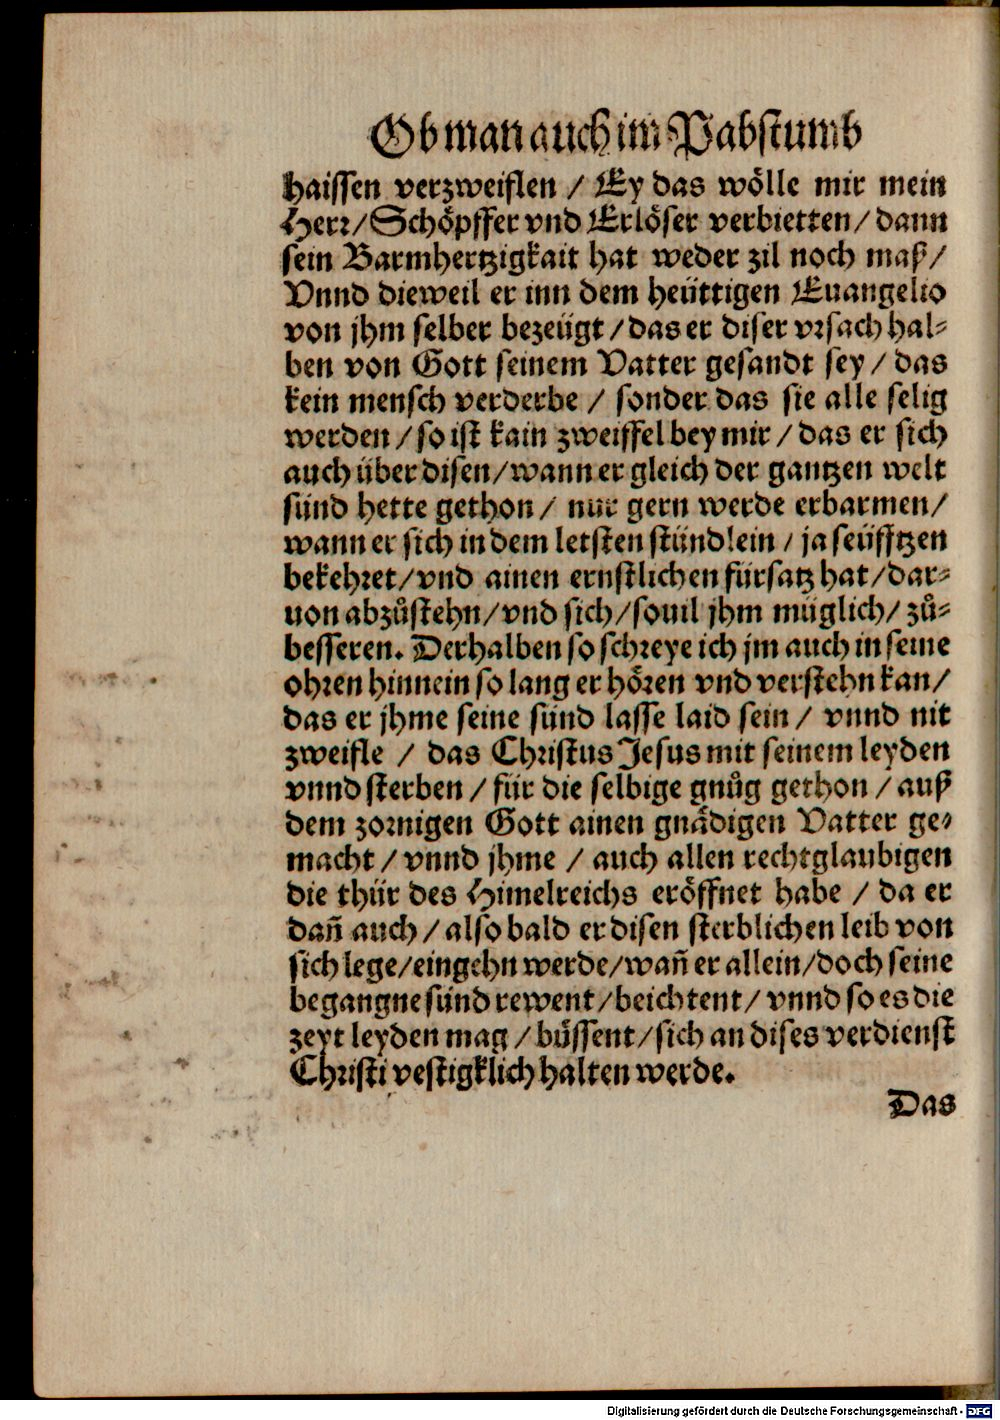 Ob man auch im Pabstumb
haissen verzweiflen / Ey das wölle mir mein
Herr/Schöpffer vnd Erlöser verbietten/dann
sein Barmhertzigkait hat weder zil noch maß/
Vnnd dieweil er inn dem heüttigen Euangelio
von jhm selber bezeügt/das er diser vrsach hal⸗
ben von Gott seinem Vatter gesandt sey/das
kein mensch verderbe / sonder das sie alle selig
werden/so ist kain zweiffel bey mir/das er sich
auch über disen/wann er gleich der gantzen welt
sünd hette gethon/ nur gern werde erbarmen/
wann er sich in dem letsten stündlein / ja seüfftzen
bekehret/vnd ainen ernstlichen fürsatz hat/dar⸗
uon abzůstehn/vnd sich/souil jhm müglich/zů⸗
besseren. Derhalben so schreye ich jm auch in seine
ohren hinnein so lang er hören vnd verstehn kan/
das er jhme seine sünd lasse laid sein/ vnnd nit
zweifle / das Christus Jesus mit seinem leyden
vnnd sterben/für die selbige gnůg gethon/auß
dem zornigen Gott ainen gnädigen Vatter ge⸗
macht/vnnd jhme / auch allen rechtglaubigen
die thür des Himelreichs eröffnet habe / da er
dañ auch/also bald er disen sterblichen leib von
sich lege/eingehn werde/wañ er allein/doch seine
begangne sünd rewent/beichtent/vnnd so es die
zeyt leyden mag/büssent/sich an dises verdienst
Christi vestigklich halten werde.
Das
Digitalisierung gefördert durch die Deutsche Forschungsgemeinschaft - DFG